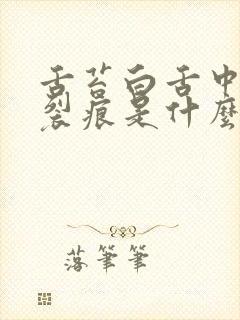 舌苔白舌中
裂痕是什麼
落筆筆